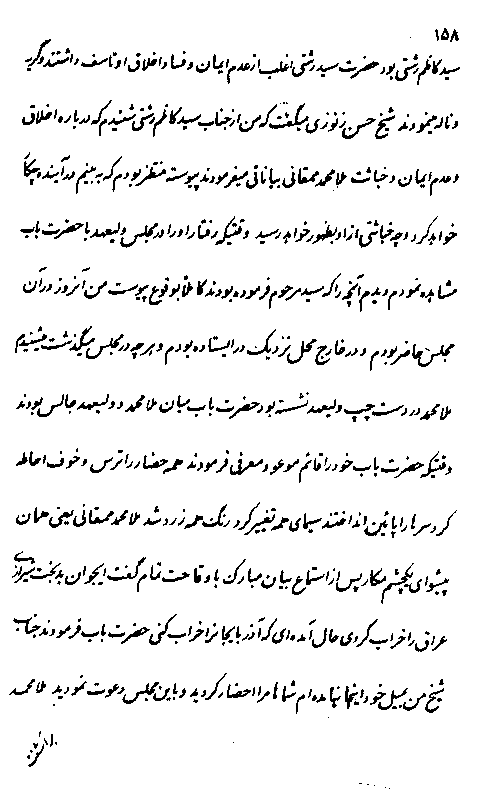 ۱۵۸
سید کاظم رشتی بود حضرت سید رشتی اغلب از عدم ایمان و فساد اخلاق او تاسف داشتند و گریه
و ناله مینمودند شیخ حسن زنوزی میگفت که من از جناب سید کاظم رشتی شنیدم که درباره اخلاق
و عدم ایمان و خباثت ملا محمد ممقانی بیاناتی میفرمودند پیوسته منتظر بودم که به بینم در آینده چکا
خواهد کرد و چه خباثتی از او بظهور خواهد رسید وقتیکه رفتار او را در مجلس ولیعهد با حضرت باب
مشاهده نمودم دیدم آنچه را که سید مرحوم فرموده بودند کاملا بوقوع پیوست من آنروز در آن
مجلس حاضر بودم و در خارج محل نزدیک در ایستاده بودم و هر چه در مجلس میگذشت میشنیدم
ملا محمد در دست چپ ولیعهد نشسته بود حضرت باب میان ملا محمد و ولیعهد جالس بودند
وقتیکه حضرت باب خود را قائم موعود معرفی فرمودند همه حضار را ترس و خوف احاطه
کرد سرها را پائین انداختند سیمای همه تغییر کرد رنگ همه زرد شد ملا محمد ممقانی یعنی همان
پیشوای یکچشم مکار پس از استماع بیان مبارک با وقاحت تمام گفت ایجوان بدبخت شیرازی
عراق را خراب کردی حال آمده‌ای که آذربایجانرا خراب کنی حضرت باب فرمودند جناب
شیخ من بمیل خود اینجا نیامده‌ام شماها مرا احضار کردید و باین مجلس دعوت نمودید ملا محمد